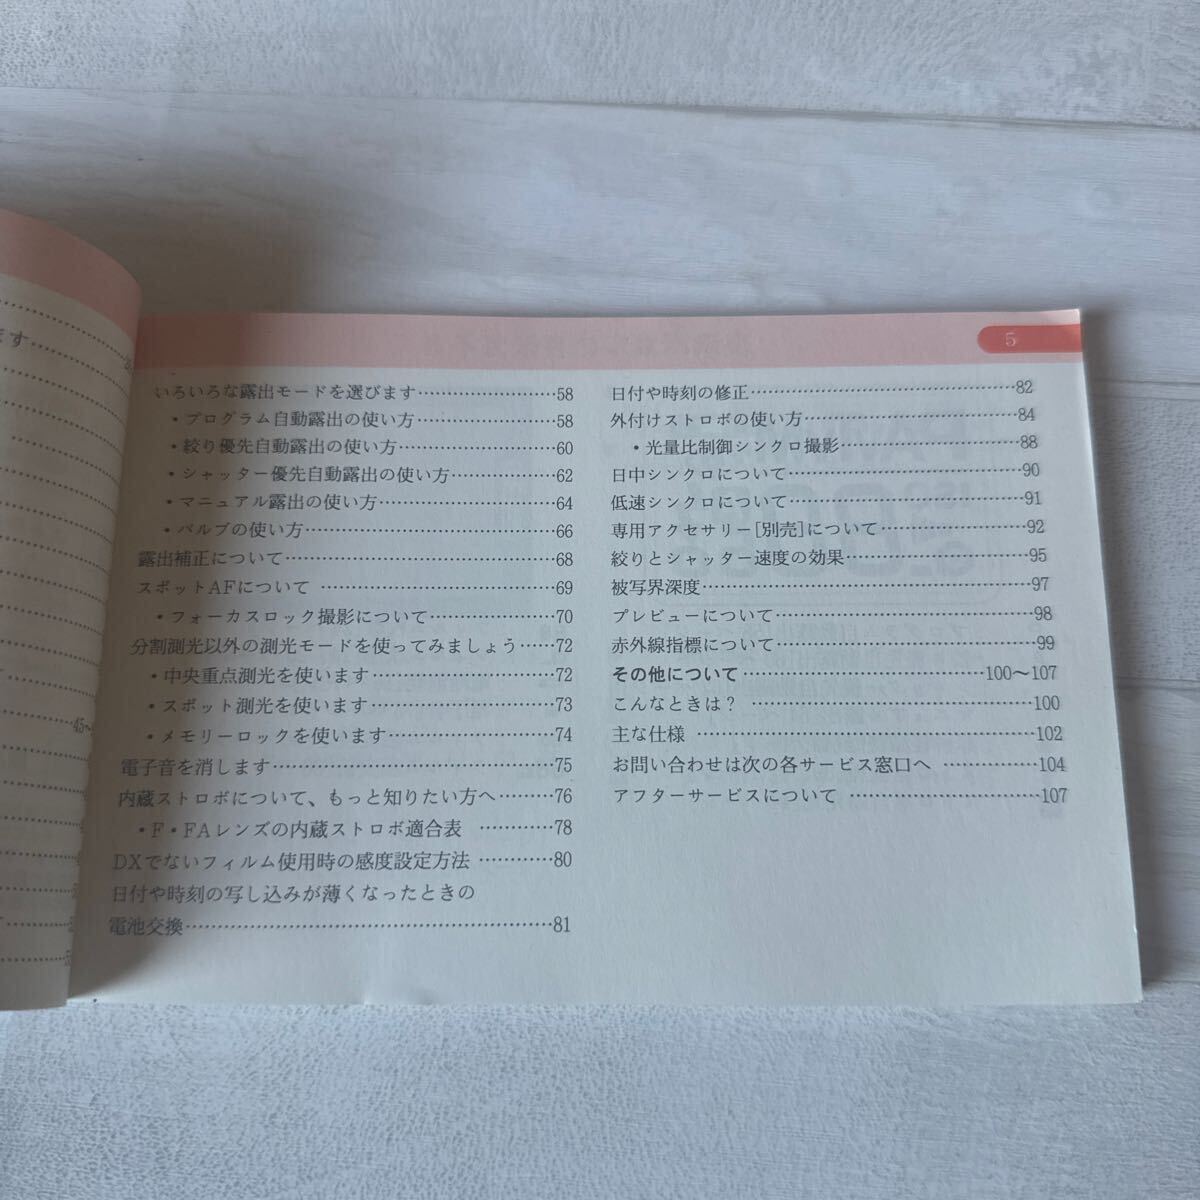 5
いろいろな露出モードを選びます……………58
・プログラム自動露出の使い方……………58
・絞り優先自動露出の使い方……………60
・シャッター優先自動露出の使い方…………62
・マニュアル露出の使い方……………64
・バルブの使い方……………66
露出補正について……………68
スポットAFについて……………69
・フォーカスロック撮影について……………70
分割測光以外の測光モードを使ってみましょう……72
・中央重点測光を使います……………72
・スポット測光を使います……………73
・メモリーロックを使います……………74
電子音を消します……………75
内蔵ストロボについて、もっと知りたい方へ………76
・F・FAレンズの内蔵ストロボ適合表…………78
DXでないフィルム使用時の感度設定方法…………80
日付や時刻の写し込みが薄くなったときの
電池交換……………81
日付や時刻の修正……………82
外付けストロボの使い方……………84
・光量比制御シンクロ撮影……………88
日中シンクロについて……………90
低速シンクロについて……………91
専用アクセサリー[別売]について……………92
絞りとシャッター速度の効果……………95
被写界深度……………97
プレビューについて……………98
赤外線指標について……………99
その他について……………100〜107
こんなときは？……………100
主な仕様……………102
お問い合わせは次の各サービス窓口へ…………104
アフターサービスについて……………107
ます
45~